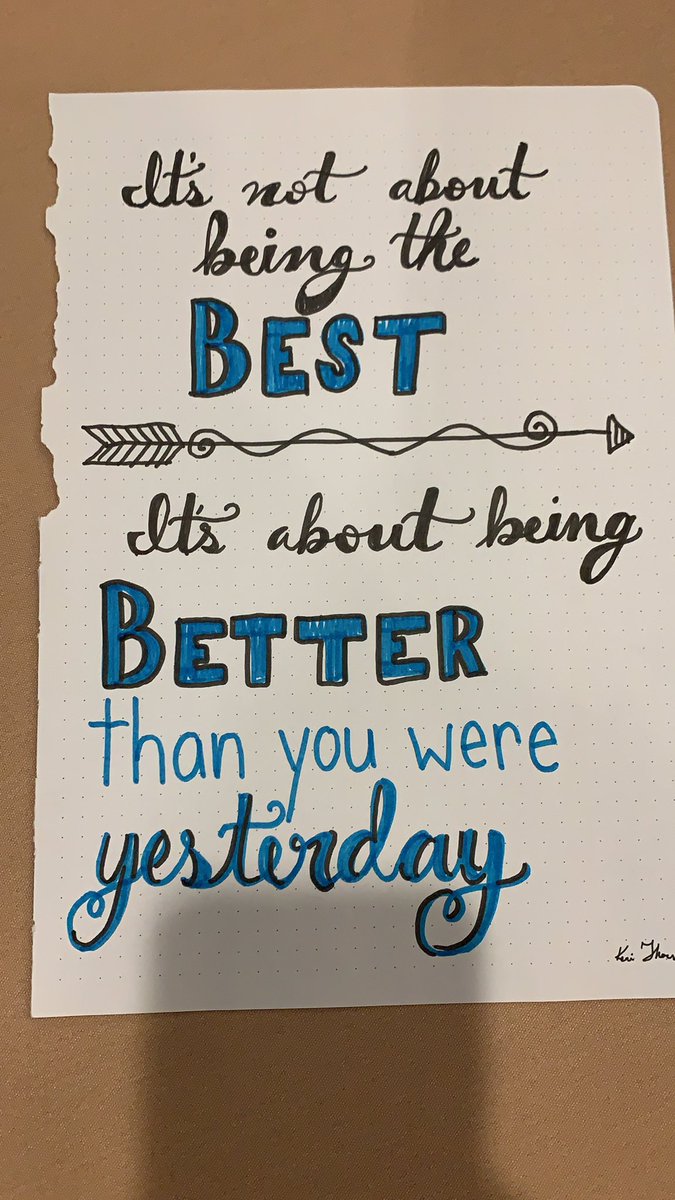 It's not about
being the
BEST
It's about being
BETTER
than you were
yesterday